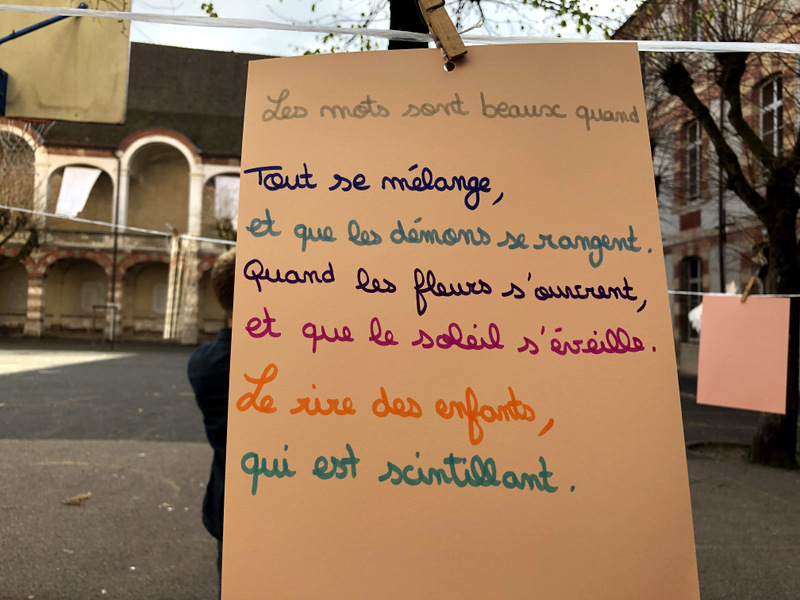 Les mots sont beaux quand
Tout se mélange,
et que les démons se rangent.
Quand les fleurs s'ouvrent,
et que le soleil s'éveille.
Le rire des enfants,
qui est scintillant.